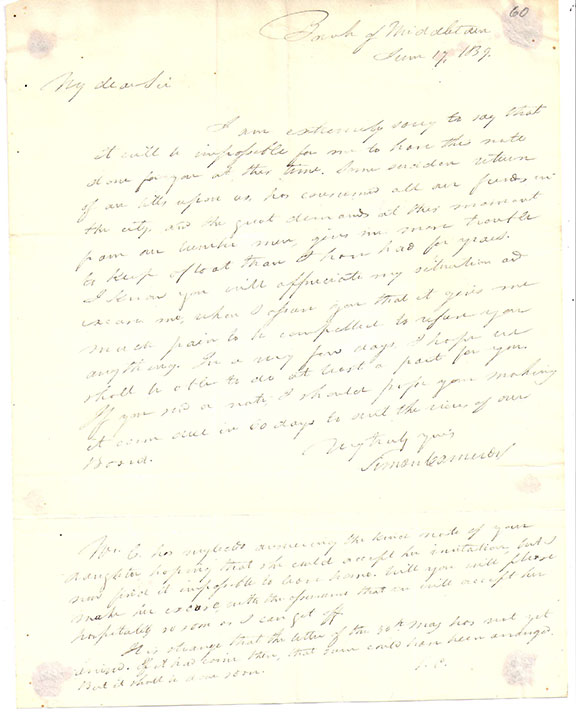 60
Bank of Middletown
June 17, 1839.
My dear Sir
I am extremely sorry to say that
it will be impossible for me to have this note
done for you at this time. Some sudden return
of our bills upon us, has consumed all our funds in
the city, and the great demands at this moment
from our lumber men, gives me more trouble
to keep afloat than I have had for years.
I know you will appreciate my situation and
excuse me, when I assure you that it gives me
much pain to be compelled to refuse you
anything. In a very few days, I hope we
shall be able to do at least a part for you.
If you send a note I should prefer your making
it come due in 60 days to suit the views of our
Board.
Very truly yours
Simon Cameron
Mrs. C. has neglected answering the kind note of your
daughter hoping that she could accept her invitation, but I
now find it impossible to leave home. Will you will please
make her excuse, with the assurance that we will accept her
hospitality so soon as I can get off.
It is strange that the letter of the 30th May has not yet
arrived. If it had come then, that sum could have been arranged.
But it shall be done soon.
S. C.